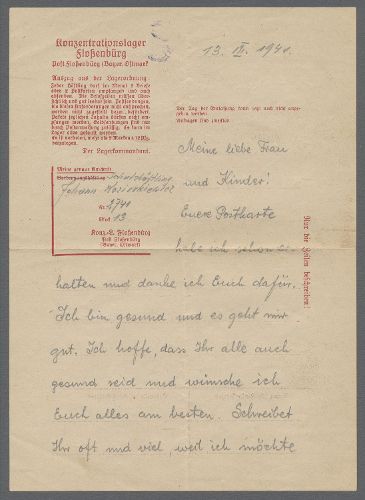 Konzentrationslager
Floßenbürg
Post Floßenbürg (Bayer. Ostmark)
13. IV. 1941.
Auszug aus der Lagerordnung:
Jeder Häftling darf im Monat 2 Briefe
oder 2 Postkarten empfangen und auch
absenden. Die Briefzeilen müssen über-
sichtlich und gut lesbar sein. Postsendungen,
die diesen Anforderungen nicht entsprechen,
werden nicht zugestellt bezw. befördert.
Pakete jeglichen Inhalts dürfen nicht
empfangen werden. Geldsendungen sind nur
durch Postanweisung zulässig. Es kann im
Lager alles gekauft werden.
Der Lagerkommandant.
Der Tag der Entlassung kann jetzt noch nicht ange-
geben werden.
Anfragen sind zwecklos.
Meine genaue Anschrift:
Schutzhäftling
Johann
Nr. 1741
Block 13
Konz.-L. Floßenbürg
Post Floßenbürg
(Bayer. Ostmark)
Nur die Zeilen beschreiben!
Meine liebe Frau
und Kinder!
Euere Postkarte
habe ich schon er-
halten und danke ich Euch dafür.
Ich bin gesund und es geht mir
gut. Ich hoffe, dass Ihr alle auch
gesund seid und wünsche ich
Euch alles am besten. Schreibet
Ihr oft und viel, weil ich möchte